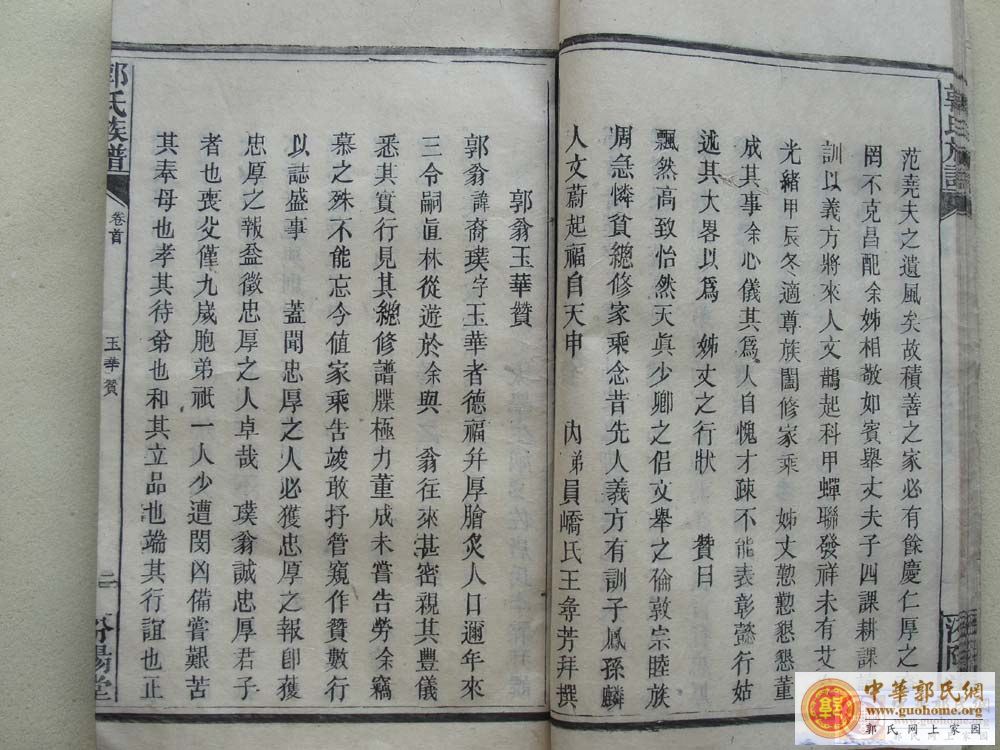 范堯夫之遺風矣故積善之家必有餘慶仁厚之
罔不克昌配余姊相敬如賓舉丈夫子四課耕課
訓以義方將來人文鵲起科甲蟬聯發祥未有艾
光緒甲辰冬適尊族闔修家乘 姊丈懃懃懇懇董
成其事余心儀其爲人自愧才疎不能表彰懿行姑
述其大畧以爲 姊丈之行狀 贊曰
飄然高致怡然天眞少卿之侶文舉之倫敦宗睦族
凋急憐貧總修家乘念昔先人義方有訓子鳳孫麟
人文蔚起福自天申 內弟員嶠氏王 芳拜撰
郭翁玉華贊
郭翁諱裔璞字玉華者德福幷厚膾炙人口邇年來
三令嗣眞林從遊於余與 翁往來甚密親其豐儀
悉其實行見其總修譜牒極力董成未嘗告勞余竊
慕之殊不能忘今値家乘告竣敢抒管窺作贊數行
以誌盛事 蓋聞忠厚之人必獲忠厚之報卽獲
忠厚之報益徵忠厚之人卓哉 璞翁誠忠厚君子
者也喪父僅九歲胞弟祇一人少遭閔凶備嘗艱苦
其奉母也孝其待弟也和其立品也端其行誼也正
郭氏族譜
卷首
玉華贊
二
汾陽堂
郭氏族譜
汾陽
中華郭氏網
www.guohome.org
郭氏网上家园